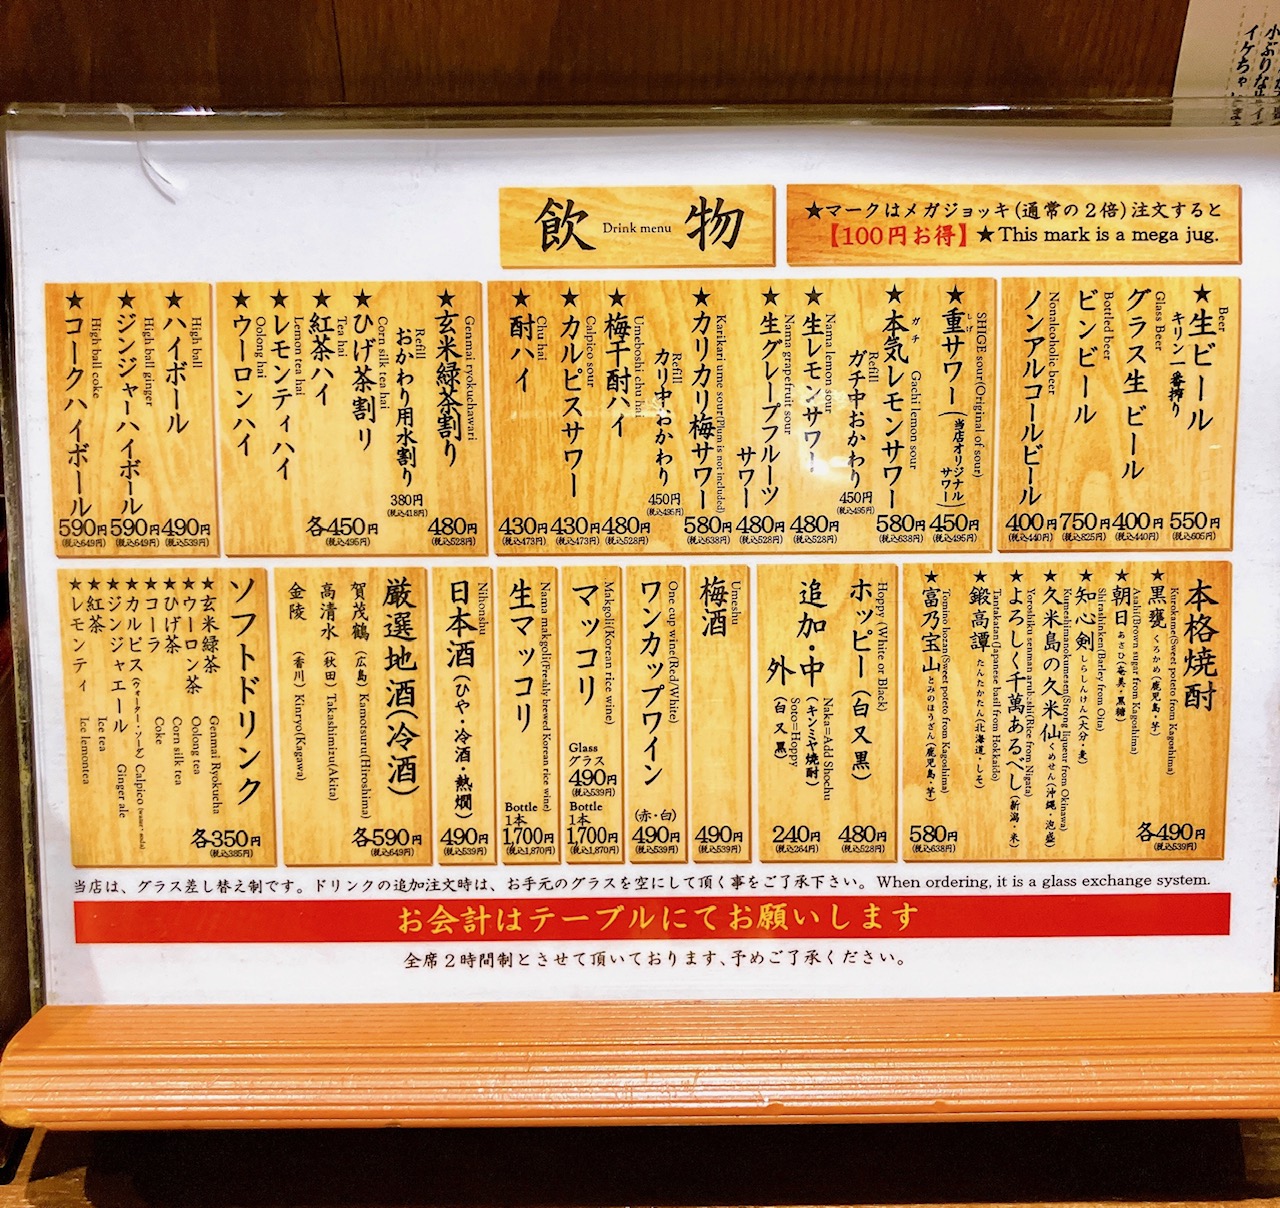 飲物
Drink menu
★マークはメガジョッキ(通常の2倍)注文すると
【100円お得】★This mark is a mega jug.
Beer
★生ビール
キリン一番搾り
550円
(税込605円)
Glass Beer
グラス生ビール
400円
(税込440円)
Bottled beer
ビンビール
750円
(税込825円)
Nonalcoholic beer
ノンアルコールビール
400円
(税込440円)
SHIGE sour(Original of sour)
★重サワー(当店オリジナルサワー)
しげ
450円
(税込495円)
Gachi lemon sour
★本気レモンサワー
ガチ
580円
(税込638円)
Refill
ガチ中おかわり
450円
(税込495円)
Nama lemon sour
★生レモンサワー
480円
(税込528円)
Nama grapefruit sour
★生グレープフルーツサワー
480円
(税込528円)
Karikari ume sour(Plum is not included)
★カリカリ梅サワー
580円
(税込638円)
Refill
カリ中おかわり
450円
(税込495円)
Umeboshi chu hai
★梅干酎ハイ
480円
(税込528円)
Calpico sour
★カルピスサワー
430円
(税込473円)
Chu hai
★酎ハイ
430円
(税込473円)
Genmai ryokuchawari
★玄米緑茶割り
480円
(税込528円)
Refill
おかわり用水割り
380円
(税込418円)
Corn silk tea hai
★ひげ茶割り
Tea hai
★紅茶ハイ
Lemon tea hai
★レモンティハイ
Oolong hai
★ウーロンハイ
各450円
(税込495円)
High ball
★ハイボール
490円
(税込539円)
High ball ginger
★ジンジャーハイボール
590円
(税込649円)
High ball coke
★コークハイボール
590円
(税込649円)
本格焼酎
Kurokame(Sweet poteto from Kagoshima)
★黒甕 くろかめ(鹿児島・芋)
Asahi(Brown sugar from Kagoshima)
★朝日 あさひ(奄美・黒糖)
Shirashinken(Barley from Oita)
★知心剣 しらしんけん(大分・麦)
Kumeshimanokumesen(Strong liqueur from Okinawa)
★久米島の久米仙 くめせん(沖縄・泡盛)
Yoroshiku senman arubeshi(Rice from Nigata)
★よろしく千萬あるべし(新潟・米)
Tantakatan(Japanese basil from Hokkaido)
★鍛高譚 たんたかたん(北海道・しそ)
Tomino hozan(Sweet poteto from Kagoshima)
★富乃宝山 とみのほうざん(鹿児島・芋)
各490円
(税込539円)
580円
(税込638円)
Hoppy (White or Black)
ホッピー(白又黒)
480円
(税込528円)
追加・中
Naka=Add Shochu
(キンミヤ焼酎)
外
Soto=Hoppy
(白又黒)
240円
(税込264円)
Umeshu
梅酒
490円
(税込539円)
One cup wine(Red/White)
ワンカップワイン
(赤・白)
490円
(税込539円)
Makgoli(Korean rice wine)
マッコリ
Glass
グラス
490円
(税込539円)
Bottle
1本
1,700円
(税込1,870円)
Nama makgoli(Freshly brewed Korean rice wine)
生マッコリ
Bottle
1本
1,700円
(税込1,870円)
Nihonshu
日本酒(ひや・冷酒・熱燗)
490円
(税込539円)
厳選地酒(冷酒)
賀茂鶴 (広島) Kamotsuru(Hiroshima)
高清水 (秋田) Takashimizu(Akita)
金陵 (香川) Kinryo(Kagawa)
各590円
(税込649円)
ソフトドリンク
★玄米緑茶 Genmai Ryokucha
★ウーロン茶 Oolong tea
★ひげ茶 Corn silk tea
★コーラ Coke
★カルピス(ウォーター・ソーダ) Calpico (water・soda)
★ジンジャエール Ginger ale
★紅茶 Ice tea
★レモンティ Ice lemontea
各350円
(税込385円)
当店は、グラス差し替え制です。ドリンクの追加注文時は、お手元のグラスを空にして頂く事をご了承下さい。 When ordering, it is a glass exchange system.
お会計はテーブルにてお願いします
全席2時間制とさせて頂いております、予めご了承ください。